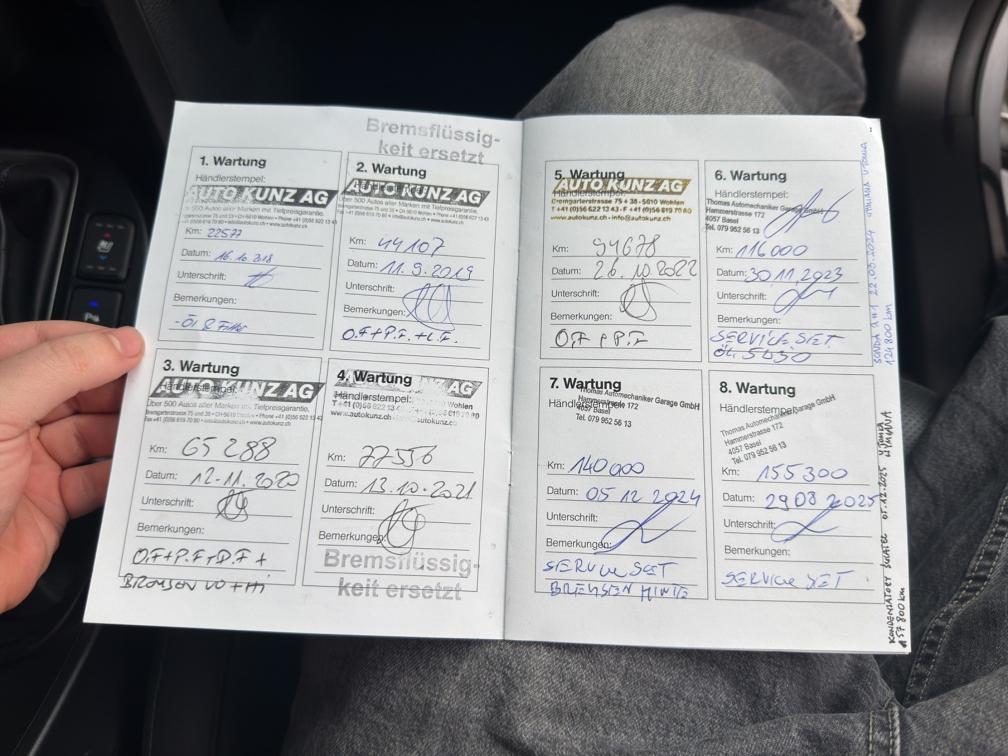 Bremsflüssig-
keit ersetzt
1. Wartung
Händlerstempel:
AUTO KUNZ AG
Über 500 Autos aller Marken mit Tiefpreisgarantie.
Km: 22577
Datum: 16.10.
Unterschrift:
Bemerkungen:
- Öl & Filter
2. Wartung
AUTO KUNZ AG
Über 500 Autos aller Marken mit Tiefpreisgarantie.
Km: 44107
Datum: 11.9.2019
Unterschrift:
Bemerkungen:
O.F+P.F.+L.F.
3. Wartung
Händlerstempel:
AUTO KUNZ AG
Über 500 Autos aller Marken mit Tiefpreisgarantie.
Km: 65288
Datum: 12.11.2020
Unterschrift:
Bemerkungen:
O.F+P.F+D.F+
BREMSEN VO+HI
4. Wartung
AUTO KUNZ AG
Händlerstempel:
Wohlen
www.autokunz.ch
Km: 77556
Datum: 13.10.2021
Unterschrift:
Bemerkungen:
Bremsflüssig-
keit ersetzt
5. Wartung
AUTO KUNZ AG
Händlerstempel:
Bremgarterstrasse 75 + 38 - 5610 Wohlen
T +41 (0)56 622 13 4 - F +41 (0)56 619 70 80
www.autokunz.ch - info@autokunz.ch
Km: 94678
Datum: 26.10.2022
Unterschrift:
Bemerkungen:
O.F + P.F
6. Wartung
Händlerstempel:
Thomas Automechaniker Garage GmbH
Hammerstrasse 172
4057 Basel
Tel. 079 952 56 13
Km: 116000
Datum: 30.11.2023
Unterschrift:
Bemerkungen:
SERVICE SET
ÖL 5W30
7. Wartung
Händlerstempel:
Thomas Automechaniker Garage GmbH
Hammerstrasse 172
4057 Basel
Tel. 079 952 56 13
Km: 140000
Datum: 05 12 2024
Unterschrift:
Bemerkungen:
SERVICE SET
BREMSEN HINTE
8. Wartung
Händlerstempel:
Thomas Automechaniker Garage GmbH
Hammerstrasse 172
4057 Basel
Tel. 079 952 56 13
Km: 155300
Datum: 29 08 2025
Unterschrift:
Bemerkungen:
SERVICE SET
SONDA 22.03.2024
124800 km
05.12.2025
157800 km